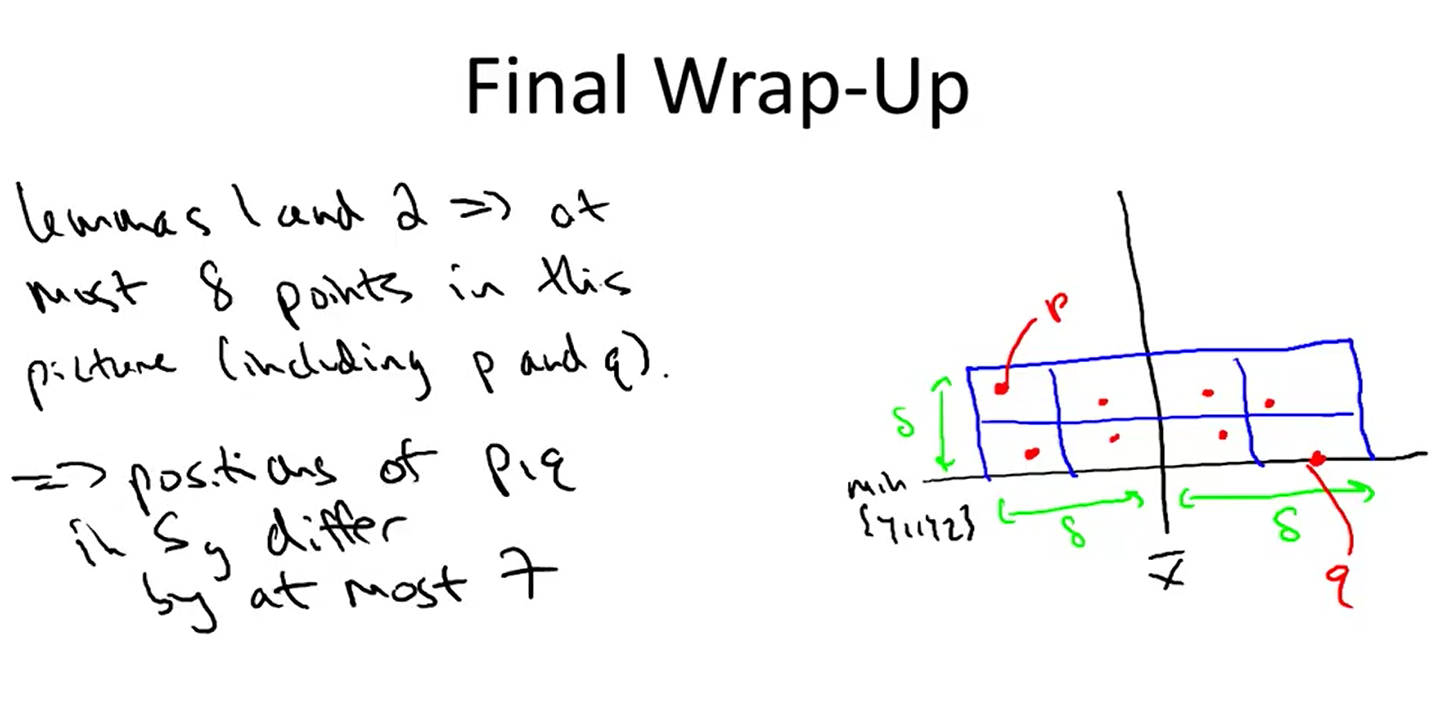 Final Wrap-Up
Lemmas 1 and 2 => at
most 8 points in this
picture (including p and q).
=> positions of p,q
in Sy differ
by at most 7
p
δ
min
{y1,y2}
δ
δ
x̄
q